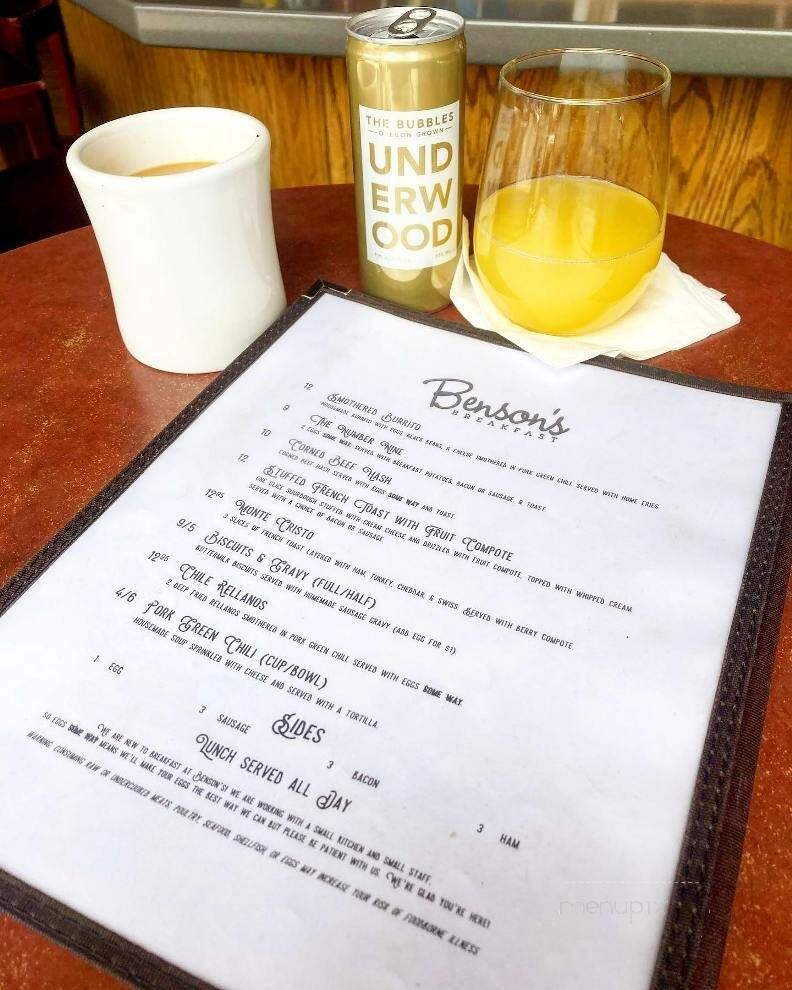 THE BUBBLES
OREGON GROWN
UND
ERW
OOD
Benson's
BREAKFAST
12 Smothered Burrito
Housemade burrito with eggs, black beans, & cheese smothered in pork green chili served with home fries
9 The Number Nine
2 eggs some way, served with breakfast potatoes, bacon or sausage, & toast
10 Corned Beef Hash
Corned beef hash served with eggs some way and toast
12 Stuffed French Toast with Fruit Compote
One slice sourdough stuffed with cream cheese and drizzled with fruit compote, topped with whipped cream
served with a choice of bacon or sausage
12.95 Monte Cristo
3 slices of french toast layered with ham, turkey, cheddar, & swiss. Served with berry compote
9/5 Biscuits & Gravy (full/half)
Buttermilk biscuits served with homemade sausage gravy (add egg for $1)
12.95 Chile Rellanos
2 deep fried rellanos smothered in pork green chili served with eggs some way.
4/6 Pork Green Chili (cup/bowl)
Housemade soup sprinkled with cheese and served with a tortilla.
Sides
1 Egg 3 Sausage 3 Bacon 3 Ham
Lunch served all Day
We are new to breakfast at Benson's! We are working with a small kitchen and small staff,
so eggs some way means we'll make your eggs the best way we can but please be patient with us. We're glad you're here!
Warning: consuming raw or undercooked meats, poultry, seafood, shellfish, or eggs may increase your risk of foodborne illness
menupix